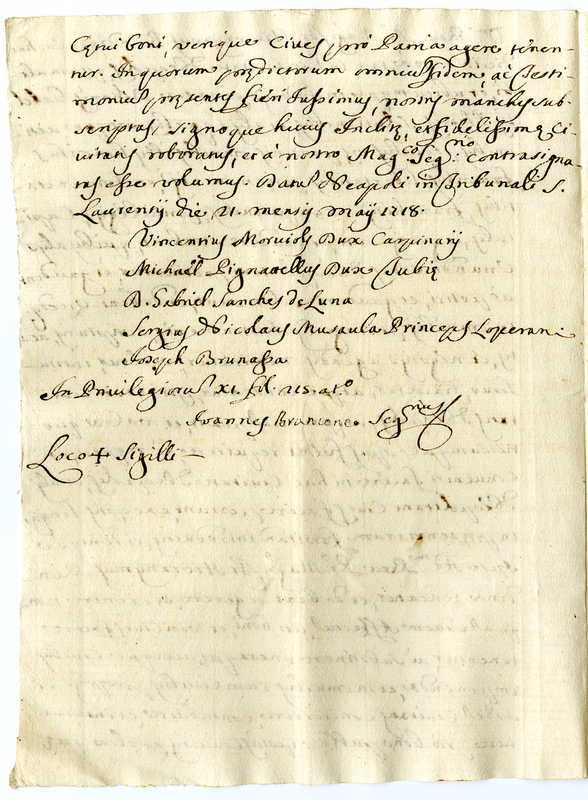 Cqui boni, verique Cives pro Patria agere tenen-
tur. In quorum prædictorum omnium fidem, ac Testi-
moniũ præsentes fieri Iussimus, nostris manibus sub-
scriptas, signoque huius Inclitæ, et fidelissimæ Ci-
vitatis roboratas, et à nostro Mag.co Seg.no contrasigna-
tas esse volumus. Datũ Neapoli in Tribunali S.
Laurentij die 21. mensis Maij 1718.
Vincentius Dux Carpinarij
Michaël Pignatellus Dux Iubiæ
D. Gabriel Sanches de Luna
Sergius Nicolaus Musaula Princeps
Ioseph Brunassa
In Privilegiorũ XI. fol. 215. at.o
Ioannes Brancone Seg.rius
Loco + Sigilli